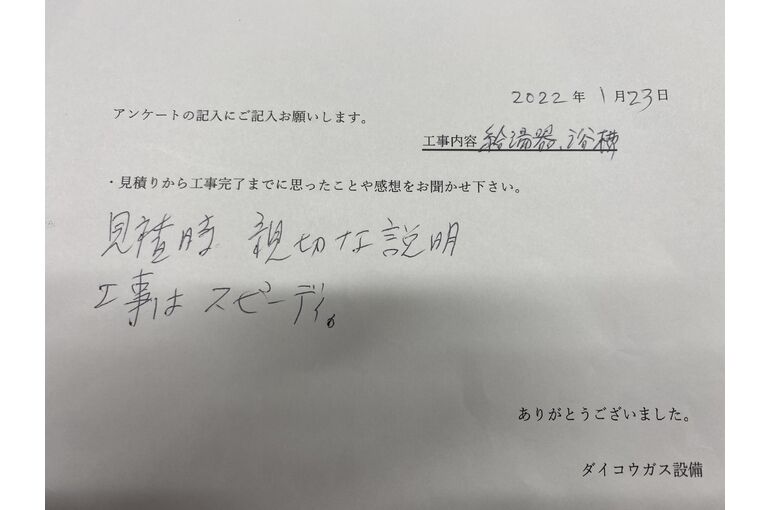 2022年 1月23日
アンケートの記入にご記入お願いします。
工事内容 給湯器、浴槽
・見積りから工事完了までに思ったことや感想をお聞かせ下さい。
見積時 親切な説明
工事は スピーディ。
ありがとうございました。
ダイコウガス設備